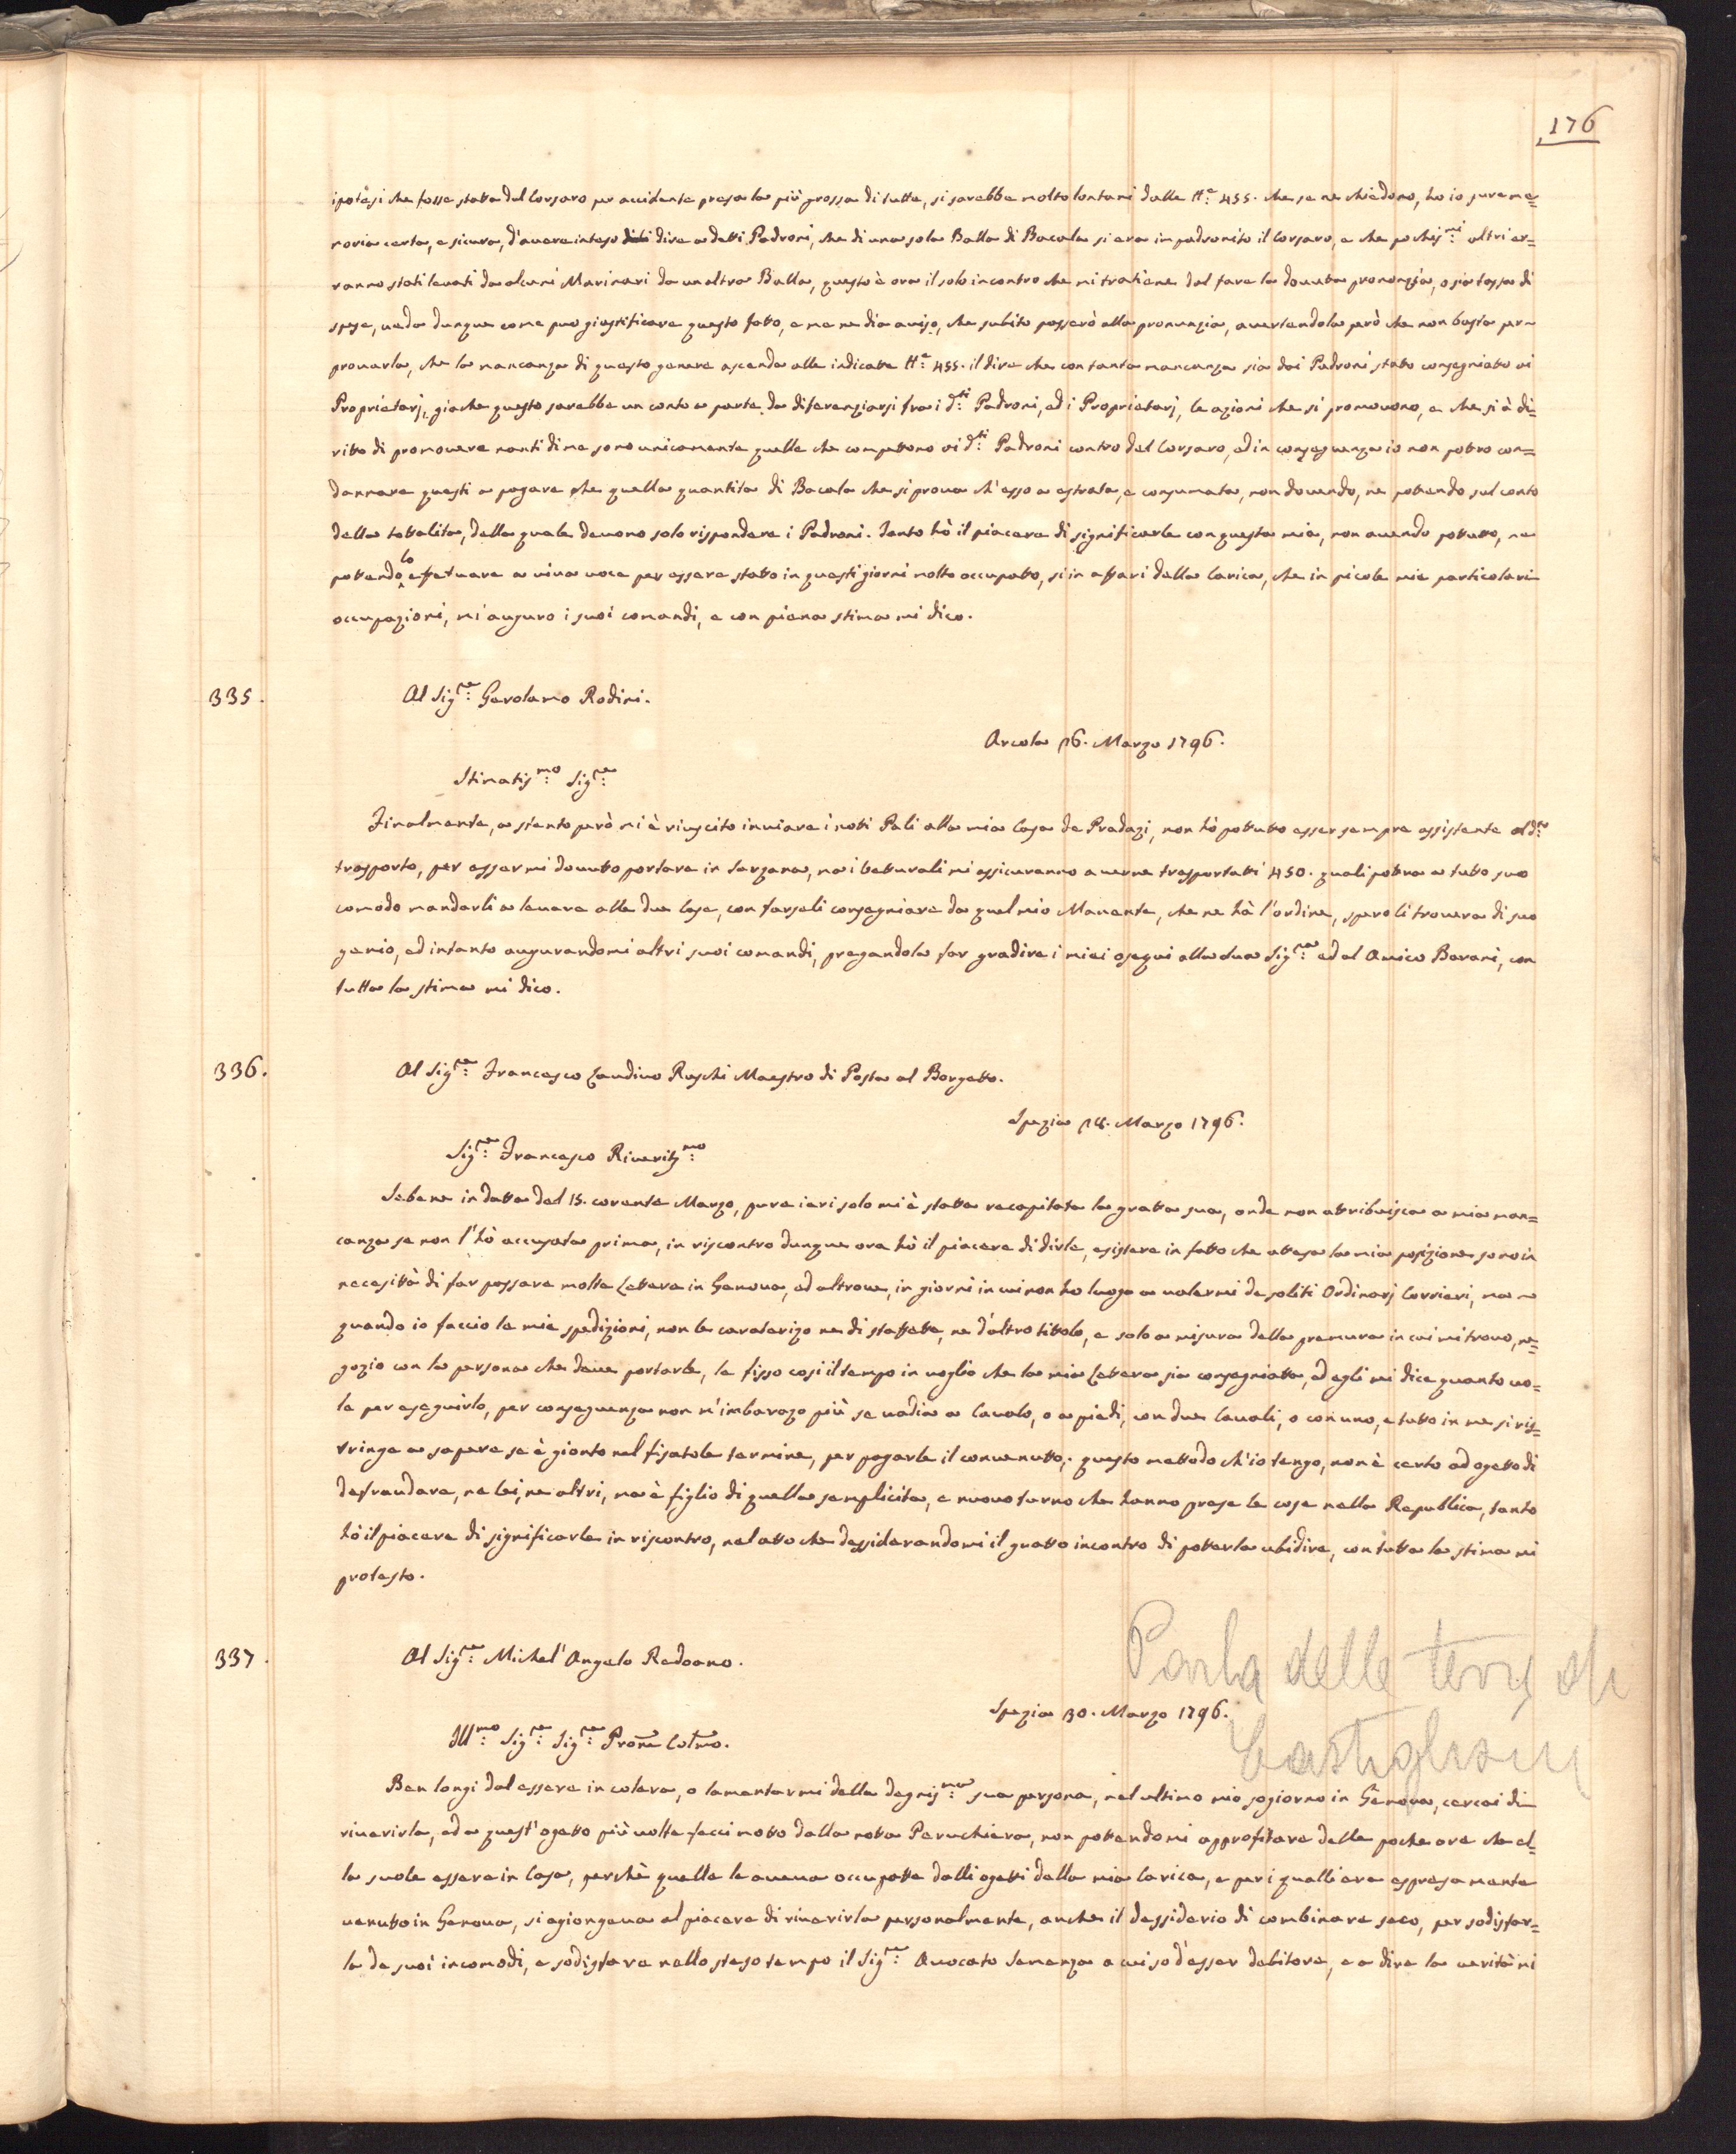 176
ipotesi che fosse stata dal Corsaro per accidente presa la più grossa di tutte, si sarebbe molto lontani dalle ₶e: 455. che se ne chiedono, ho io pure me=
moria certa, e sicura, d'avere inteso dire a detti Padroni, che di una sola Balla di Bacala si era impadronito il Corsaro, e che pochissmi: altri er=
ranno stati levati da alcuni Marinari da un altra Balla, questo è ora il solo incontro che mi tratiene dal fare la dovuta prononzia, o sia tassa di
spese, veda dunque come puo giustificare questo fatto, e me ne dia aviso, che subito passerò alla pronunzia, avertendola però che non basta per
provarla, che la mancanza di questo genere ascenda alle indicate ₶e: 455. il dire che con tanta mancanza sia dai Padroni stato consegniato ai
Proprietarj, giache questo sarebbe un conto a parte da diferenziarsi fra i dti: Padroni, ed i Proprietarj, le azioni che si promovono, e che si à di=
ritto di promovere nanti di me sono unicamente quelle che compettono ai dti: Padroni contro del Corsaro, ed in conseguenza io non potro con=
dannare questi a pagare che quella quantita di Bacala che si prova ch'esso a estrata, e consumata, non dovendo, ne potendo sul conto
della totalita, della quale devono solo rispondere i Padroni. Tanto hò il piacere di significarle con questa mia, non avendo potuto, ne
potendo lo effetuare a viva voce per essere stato in questi giorni molto occupato, si in affari della Carica, che in picole mie particolari
occupazioni, mi auguro i suoi comandi, e con piena stima mi dico.
335.
Al Sigre: Gerolamo Rodini.
Arcola 16. Marzo 1796.
Stimatissmo: Sigre:
Finalmente, a stento però mi è riuscito inviare i noti Pali alla mia Casa de Pradazi, non hò potuto esser sempre assistente al dto:
trasporto, per essermi dovuto portare in Sarzana, ma i betturali mi assicuranno averne trasportati 450. quali potra a tuto suo
comodo mandarli a levare alle due Case, con farseli consegniare da quel mio Manente, che ne hà l'ordine, spero li trovera di suo
genio, ed intanto augurandomi altri suoi comandi, pregandola far gradire i miei ossequi alla sua Sigra: ed al Amico Barani, con
tutta la stima mi dico.
336.
Al Sigre: Francesco Landino Ruschi Maestro di Posta al Borgetto.
Spezia 18. Marzo 1796.
Sigre: Francesco Riveritissmo:
Sebene in datta del 15. corente Marzo, pure ieri solo mi è stata recapitata la gratta sua, onde non atribuisca a mia man=
canza se non l'hò accusata prima, in riscontro dunque ora hò il piacere di dirle, esistere in fatto che attesa la mia posizione sono in
necesità di far passare molte Lettere in Genova, ed altrove, in giorni in cui non ho luogo a valermi de soliti Ordinarj Corrieri, ma
quando io faccio le mie spedizioni, non le caraterizo ne di staffette, ne d'altro titolo, e solo a misura della premura in cui mi trovo, ne=
gozio con la persona che deve portarle, le fisso cosi il tempo in voglio che la mia Lettera sia consegniata, ed egli mi dice quanto vo=
le per eseguirlo, per conseguenza non m'imbarazo più se vadia a Cavalo, o a piedi, con due Cavali, o con uno, e tutto in me si ris=
tringe a sapere se è gionto nel fisatole termine, per pagarle il convenutto, questo metodo ch'io tengo, non è certo ad ogetto di
defraudare, ne lei, ne altri, ma è figlio di quella semplicita, e nuovo turno che hanno prese le cose nella Republica, tanto
hò il piacere di significarle in riscontro, nel atto che dessiderandomi il gratto incontro di potterla ubidire, con tutta la stima mi
protesto.
337.
Al Sigre: Michel' Angelo Redoano.
Parla delle terre di
Castiglioni
Spezia 30. Marzo 1796.
Illmo: Sigre: Sigre: Prone Colmo.
Ben longi dal essere in colera, o lamentarmi della degnissma: sua persona, nel ultimo mio sogiorno in Genova, cercai di
riverirla, ed a quest'ogetto più volte feci moto dalla nota Peruchiera, non pottendomi approfitare delle poche ore che el=
la suole essere in Casa, perchè quelle le aveva occupatte dalli ogetti della mia Carica, e per i qualli ero espresamente
venutto in Genova, si agiongeva al piacere di riverirla personalmente, anche il dessiderio di combinare seco, per sodisfar=
la de suoi incomodi, e sodisfare nello steso tempo il Sigre: Avocato Semenza a cui so d'esser debitore, e a dire la verità mi